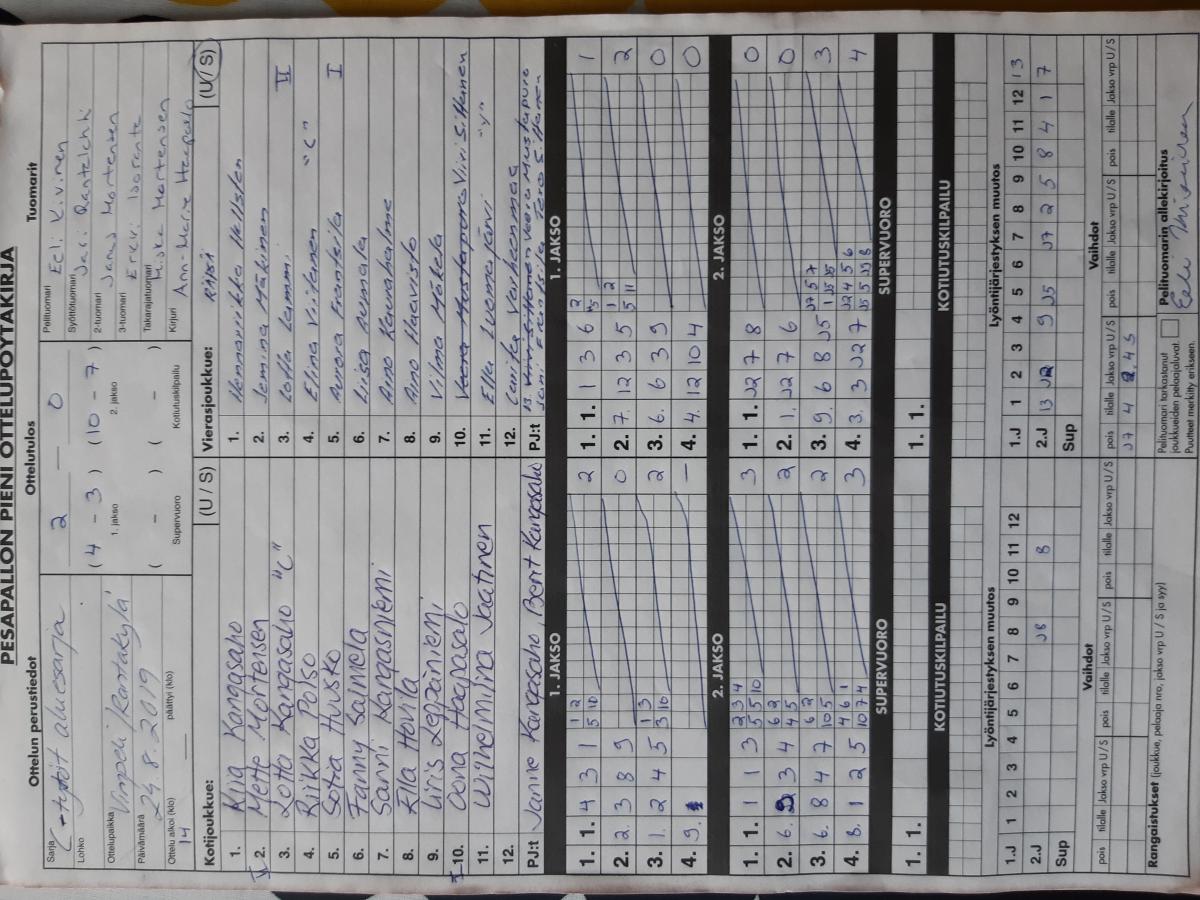 PESÄPALLON PIENI OTTELUPÖYTÄKIRJA
Ottelun perustiedot
Sarja C-tytöt aluesarja
Lohko
Ottelupaikka Vimpeli/Rantakylä
Päivämäärä 24.8.2019
Ottelu alkoi (klo) 14 päättyi (klo)
Ottelutulos
2 — 0
( 4 - 3 ) (10 - 7 )
1. jakso 2. jakso
( - ) ( - )
Supervuoro Kotiutuskilpailu
Tuomarit
Pelituomari Eeli Kivinen
Syöttötuomari Jari Rantalahti
2-tuomari Jonas Mortensen
3-tuomari Erkki Isoranta
Takarajatuomari Miska Mortensen
Kirjuri Ann-Marie Haapasalo
Kotijoukkue: (U / S)
1. Kiia Kangasaho
2. Mette Mortensen
3. Lotta Kangasaho "C"
4. Riikka Polso
5. Setra Husko
6. Fanny Sainela
7. Sanni Kangasniemi
8. Ella Hovila
9. Liris Leppiniemi
I 10. Oona Haapasalo
11. Wilhelmiina Jaatinen
12.
PJ:t Janne Kangasaho, Bert Kangasaho
Vierasjoukkue: Räisä (U / S)
1. Hennariikka Hellsten
2. Jemina Mäkinen
3. Lotta Lammi II
4. Elina Viitanen "C"
5. Aurora Frantsila I
6. Liisa Aumala
7. Aino Rauhalme
8. Aino Haavisto
9. Vilma Mäkelä
10. Veera Mustapuro Viivi Siltanen
11. Ella Luomajärvi "y"
12. Larika Varheenmaa
13. Viivi Siltanen Veera Mustapuro
PJ:t Jani Frantsila Tero Siltanen
1. JAKSO
1. 1. 4 3 1 1 2 2
5 10
2. 2. 3 8 9 0
3. 1. 2 4 5 1 3 2
3 10
4. 9. –
2. JAKSO
1. 1. 1 1 3 2 3 4 3
5 5 10
2. 6. 2 3 4 6 2 2
4 5
3. 6. 8 4 7 6 2 2
10 5
4. 8. 1 2 5 4 6 1 3
10 7 4
SUPERVUORO
1. 1.
KOTIUTUSKILPAILU
1. JAKSO
1. 1. 1 3 6 2 1
2. 7. 12 3 5 1 2 2
5 11
3. 6. 6 3 9 0
4. 4. 12 10 4 0
2. JAKSO
1. 1. J2 7 8 0
2. 1. J2 7 6 0
3. 9. 6 8 J5 J7 5 7 3
1 J5 J5
4. 3. 3 J2 7 J2 4 5 6 4
J5 5 J5 8
SUPERVUORO
1. 1.
KOTIUTUSKILPAILU
Lyöntijärjestyksen muutos
1 2 3 4 5 6 7 8 9 10 11 12
1.J
2.J J8 8
Sup
Vaihdot
pois tilalle Jakso vrp U / S pois tilalle Jakso vrp U / S pois tilalle Jakso vrp U / S
Rangaistukset (joukkue, pelaaja nro, jakso vrp U / S ja syy)
Lyöntijärjestyksen muutos
1 2 3 4 5 6 7 8 9 10 11 12 13
1.J
2.J 13 J2 9 J5 J7 2 5 8 4 1 7
Sup
Vaihdot
pois tilalle Jakso vrp U / S pois tilalle Jakso vrp U / S pois tilalle Jakso vrp U / S
J7 4 2. 4 S
Pelituomari tarkastanut joukkueiden pelaajaluvat.
Puutteet merkitty erikseen.
Pelituomarin allekirjoitus